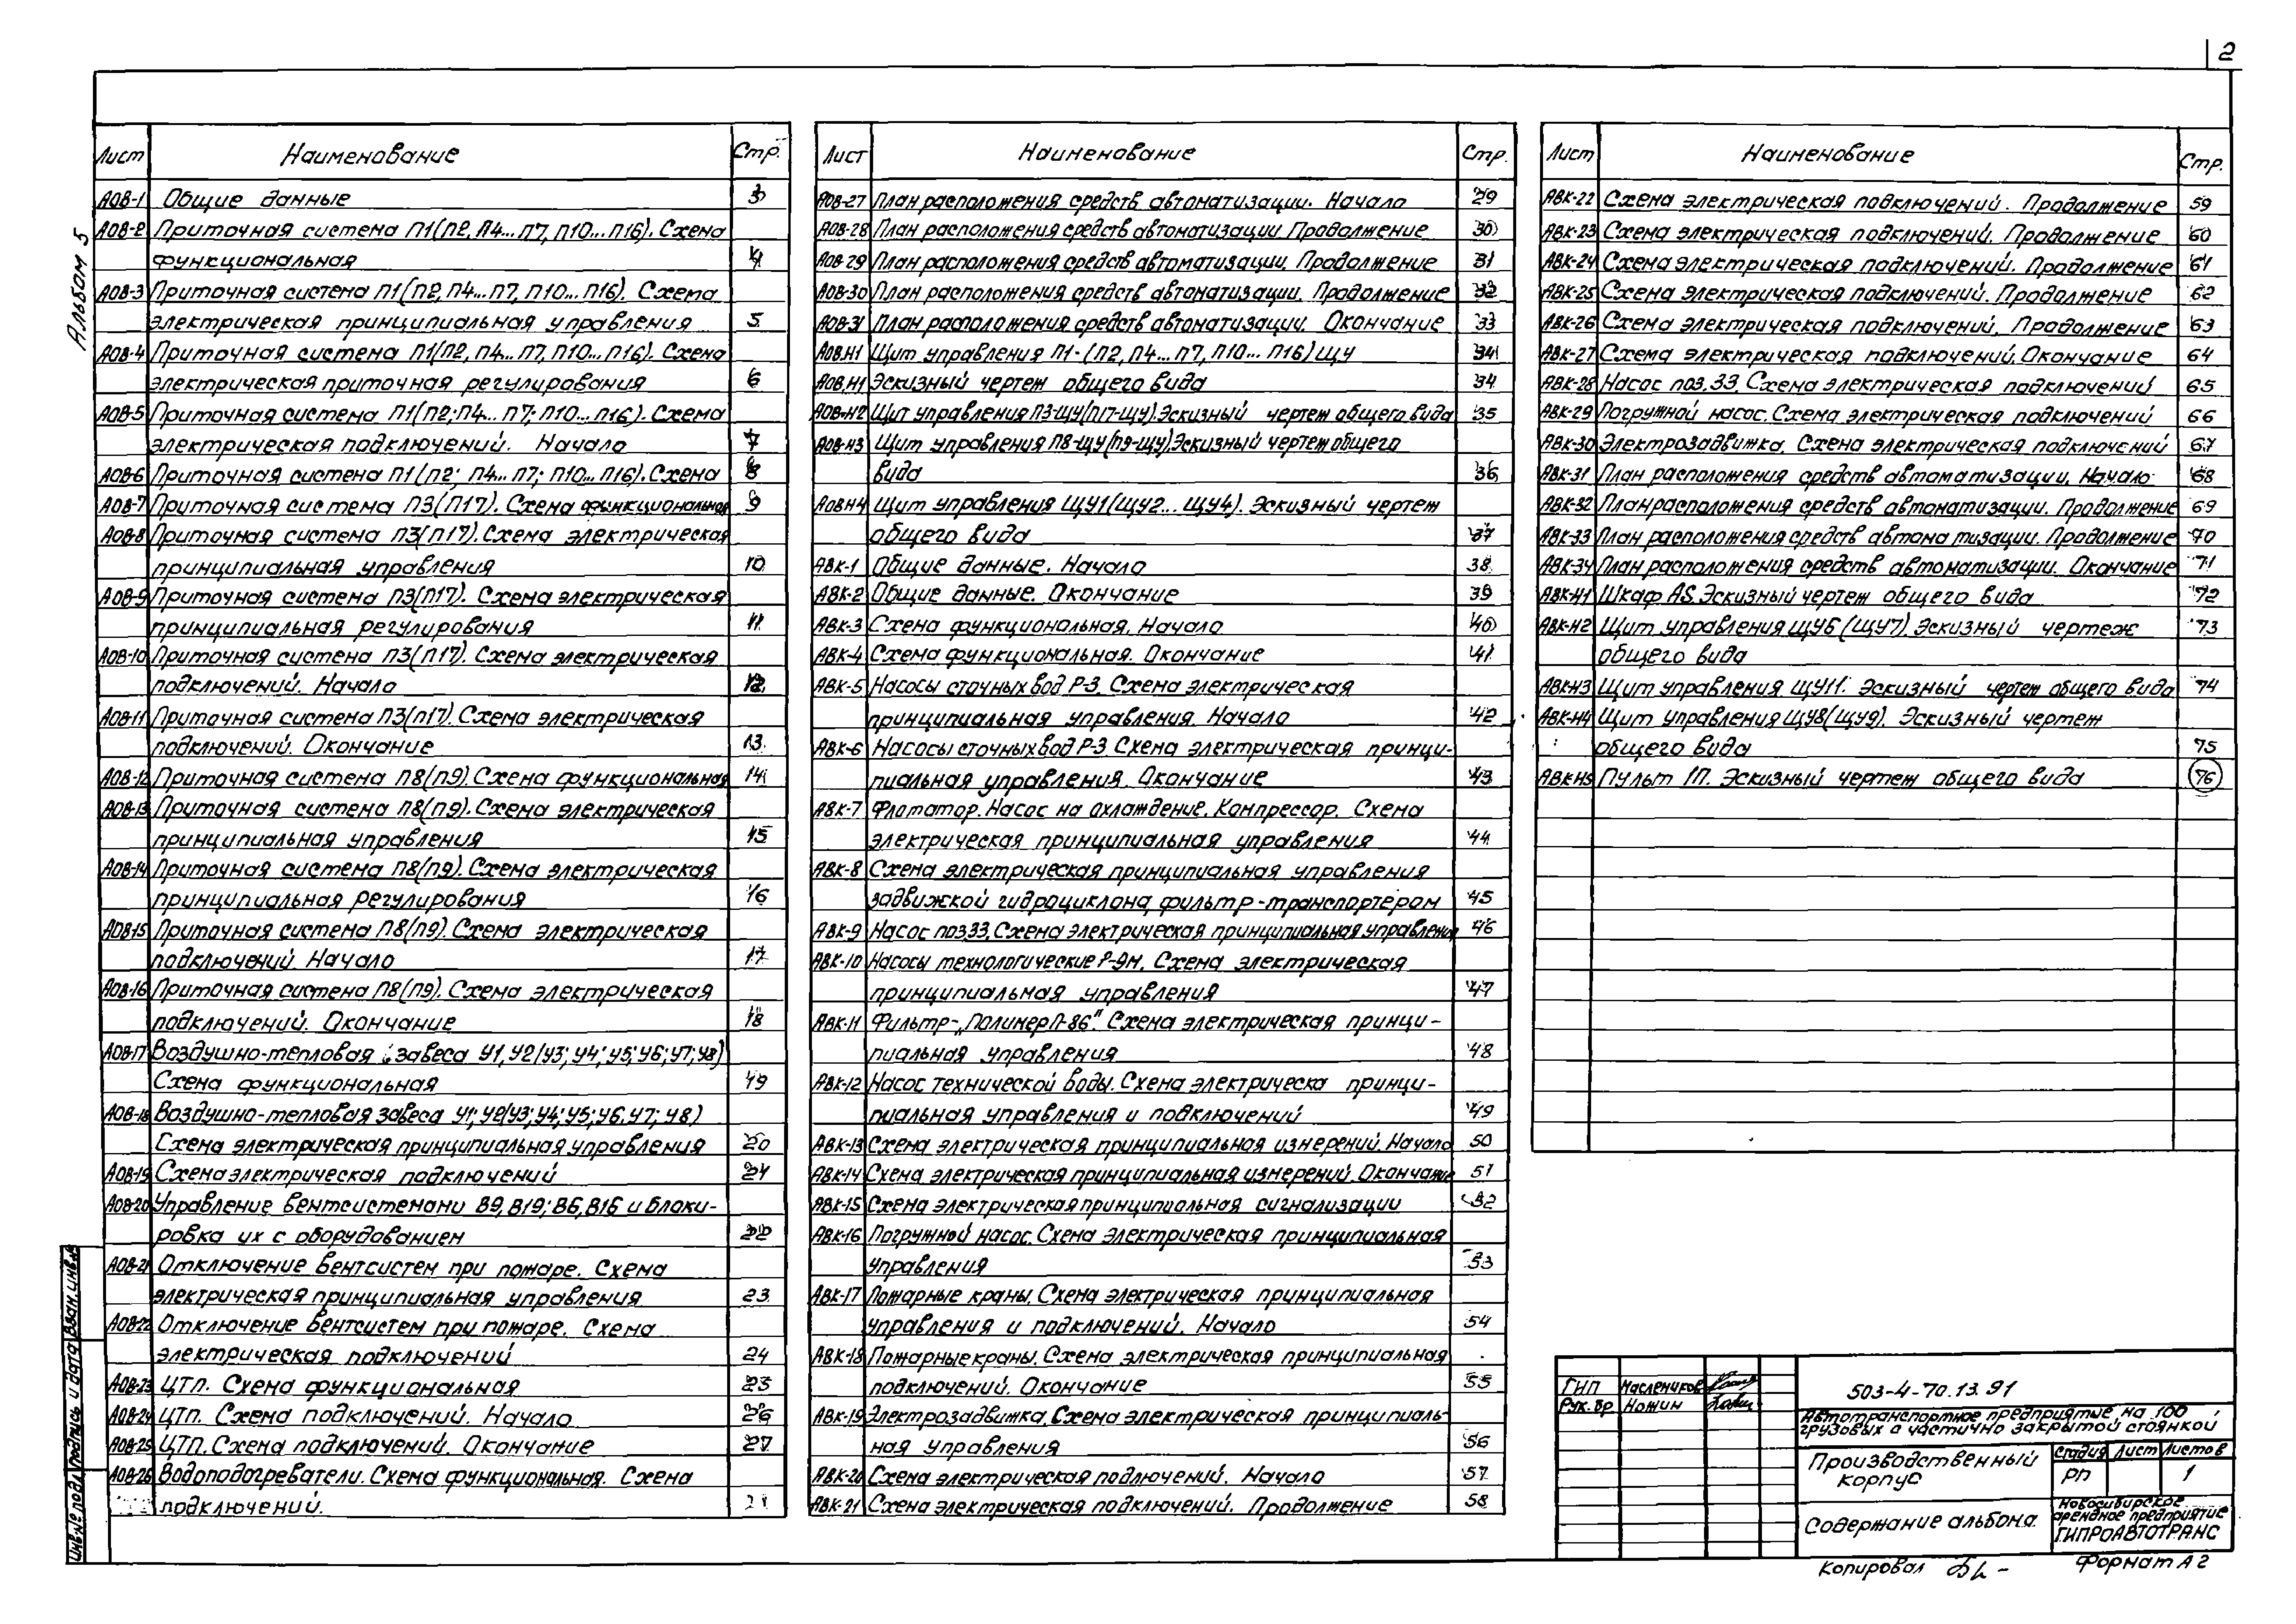 2
Альбом 5
Лист Наименование Стр.
АОВ-1 Общие данные 3
АОВ-2 Приточная система П1(П2, П4...П7, П10...П16). Схема
функциональная 4
АОВ-3 Приточная система П1(П2, П4...П7, П10...П16). Схема
электрическая принципиальная управления 5
АОВ-4 Приточная система П1(П2, П4...П7, П10...П16). Схема
электрическая приточная регулирования 6
АОВ-5 Приточная система П1(П2; П4...П7; П10...П16). Схема
электрическая подключений. Начало 7
АОВ-6 Приточная система П1(П2; П4...П7; П10...П16). Схема 8
АОВ-7 Приточная система П3(П17). Схема функциональная 9
АОВ-8 Приточная система П3(П17). Схема электрическая
принципиальная управления 10
АОВ-9 Приточная система П3(П17). Схема электрическая
принципиальная регулирования 11
АОВ-10 Приточная система П3(П17). Схема электрическая
подключений. Начало 12
АОВ-11 Приточная система П3(П17). Схема электрическая
подключений. Окончание 13
АОВ-12 Приточная система П8(П9). Схема функциональная 14
АОВ-13 Приточная система П8(П9). Схема электрическая
принципиальная управления 15
АОВ-14 Приточная система П8(П9). Схема электрическая
принципиальная регулирования 16
АОВ-15 Приточная система П8(П9). Схема электрическая
подключений. Начало 17
АОВ-16 Приточная система П8(П9). Схема электрическая
подключений. Окончание 18
АОВ-17 Воздушно-тепловая завеса У1, У2(У3; У4; У5; У6; У7; У8)
Схема функциональная 19
АОВ-18 Воздушно-тепловая завеса У1; У2(У3; У4; У5; У6. У7; У8)
Схема электрическая принципиальная управления 20
АОВ-19 Схема электрическая подключений 21
АОВ-20 Управление вентсистемами В9, В19; В6, В16 и блоки-
ровка их с оборудованием 22
АОВ-21 Отключение вентсистем при пожаре. Схема
электрическая принципиальная управления 23
АОВ-22 Отключение вентсистем при пожаре. Схема
электрическая подключений 24
АОВ-23 ЦТП. Схема функциональная 25
АОВ-24 ЦТП. Схема подключений. Начало 26
АОВ-25 ЦТП. Схема подключений. Окончание 27
АОВ-26 Водоподогреватели. Схема функциональная. Схема
подключений.
Лист Наименование Стр.
АОВ-27 План расположения средств автоматизации. Начало 29
АОВ-28 План расположения средств автоматизации. Продолжение 30
АОВ-29 План расположения средств автоматизации. Продолжение 31
АОВ-30 План расположения средств автоматизации. Продолжение 32
АОВ-31 План расположения средств автоматизации. Окончание 33
АОВ.Н1 Щит управления П1-(П2, П4...П7, П10...П16)ЩУ 34
АОВ.Н1 Эскизный чертеж общего вида 34
АОВ-Н2 Щит управления П3-ЩУ(П17-ЩУ). Эскизный чертеж общего вида 35
АОВ-Н3 Щит управления П8-ЩУ(П9-ЩУ). Эскизный чертеж общего
вида 36
АОВ-Н4 Щит управления ЩУ1(ЩУ2...ЩУ4). Эскизный чертеж
общего вида 37
АВК-1 Общие данные. Начало 38
АВК-2 Общие данные. Окончание 39
АВК-3 Схема функциональная. Начало 40
АВК-4 Схема функциональная. Окончание 41
АВК-5 Насосы сточных вод Р-3. Схема электрическая
принципиальная управления. Начало 42
АВК-6 Насосы сточных вод Р-3. Схема электрическая принци-
пиальная управления. Окончание 43
АВК-7 Флотатор. Насос на охлаждение. Компрессор. Схема
электрическая принципиальная управления 44
АВК-8 Схема электрическая принципиальная управления
задвижкой гидроциклона, фильтр-транспортером 45
АВК-9 Насос поз.33. Схема электрическая принципиальная управления 46
АВК-10 Насосы технологические Р-9М. Схема электрическая
принципиальная управления 47
АВК-11 Фильтр-„Полимер П-86". Схема электрическая принци-
пиальная управления 48
АВК-12 Насос технической воды. Схема электрическа принци-
пиальная управления и подключений 49
АВК-13 Схема электрическая принципиальная измерений. Начало 50
АВК-14 Схема электрическая принципиальная измерений. Окончание 51
АВК-15 Схема электрическая принципиальная сигнализации 52
АВК-16 Погружной насос. Схема электрическая принципиальная
управления 53
АВК-17 Пожарные краны. Схема электрическая принципиальная
управления и подключений. Начало 54
АВК-18 Пожарные краны. Схема электрическая принципиальная
подключений. Окончание 55
АВК-19 Электрозадвижка. Схема электрическая принципиаль-
ная управления 56
АВК-20 Схема электрическая подлючений. Начало 57
АВК-21 Схема электрическая подключений. Продолжение 58
Лист Наименование Стр.
АВК-22 Схема электрическая подключений. Продолжение 59
АВК-23 Схема электрическая подключений. Продолжение 60
АВК-24 Схема электрическая подключений. Продолжение 61
АВК-25 Схема электрическая подключений. Продолжение 62
АВК-26 Схема электрическая подключений. Продолжение 63
АВК-27 Схема электрическая подключений. Окончание 64
АВК-28 Насос поз.33. Схема электрическая подключений 65
АВК-29 Погружной насос. Схема электрическая подключений 66
АВК-30 Электрозадвижка. Схема электрическая подключений 67
АВК-31 План расположения средств автоматизации. Начало 68
АВК-32 План расположения средств автоматизации. Продолжение 69
АВК-33 План расположения средств автоматизации. Продолжение 70
АВК-34 План расположения средств автоматизации. Окончание 71
АВК-Н1 Шкаф А5. Эскизный чертеж общего вида 72
АВК-Н2 Щит управления ЩУ6(ЩУ7). Эскизный чертеж 73
общего вида
АВК-Н3 Щит управления ЩУ11. Эскизный чертеж общего вида 74
АВК-Н4 Щит управления ЩУ8(ЩУ9). Эскизный чертеж
общего вида 75
АВК-Н5 Пульт 1П. Эскизный чертеж общего вида 76
ГИП Маслеников
Рук.бр Номин
503-4-70.13.91
Автотранспортное предприятие на 100
грузовых а частично закрытой стоянкой
Производственный
корпус
Стадия Лист Листов
РП 1
Содержание альбома
Новосибирское
арендное предприятие
ГИПРОАВТОТРАНС
Копировал
Формат А2
Инв.№ подл. Подпись и дата Взам.инв.№